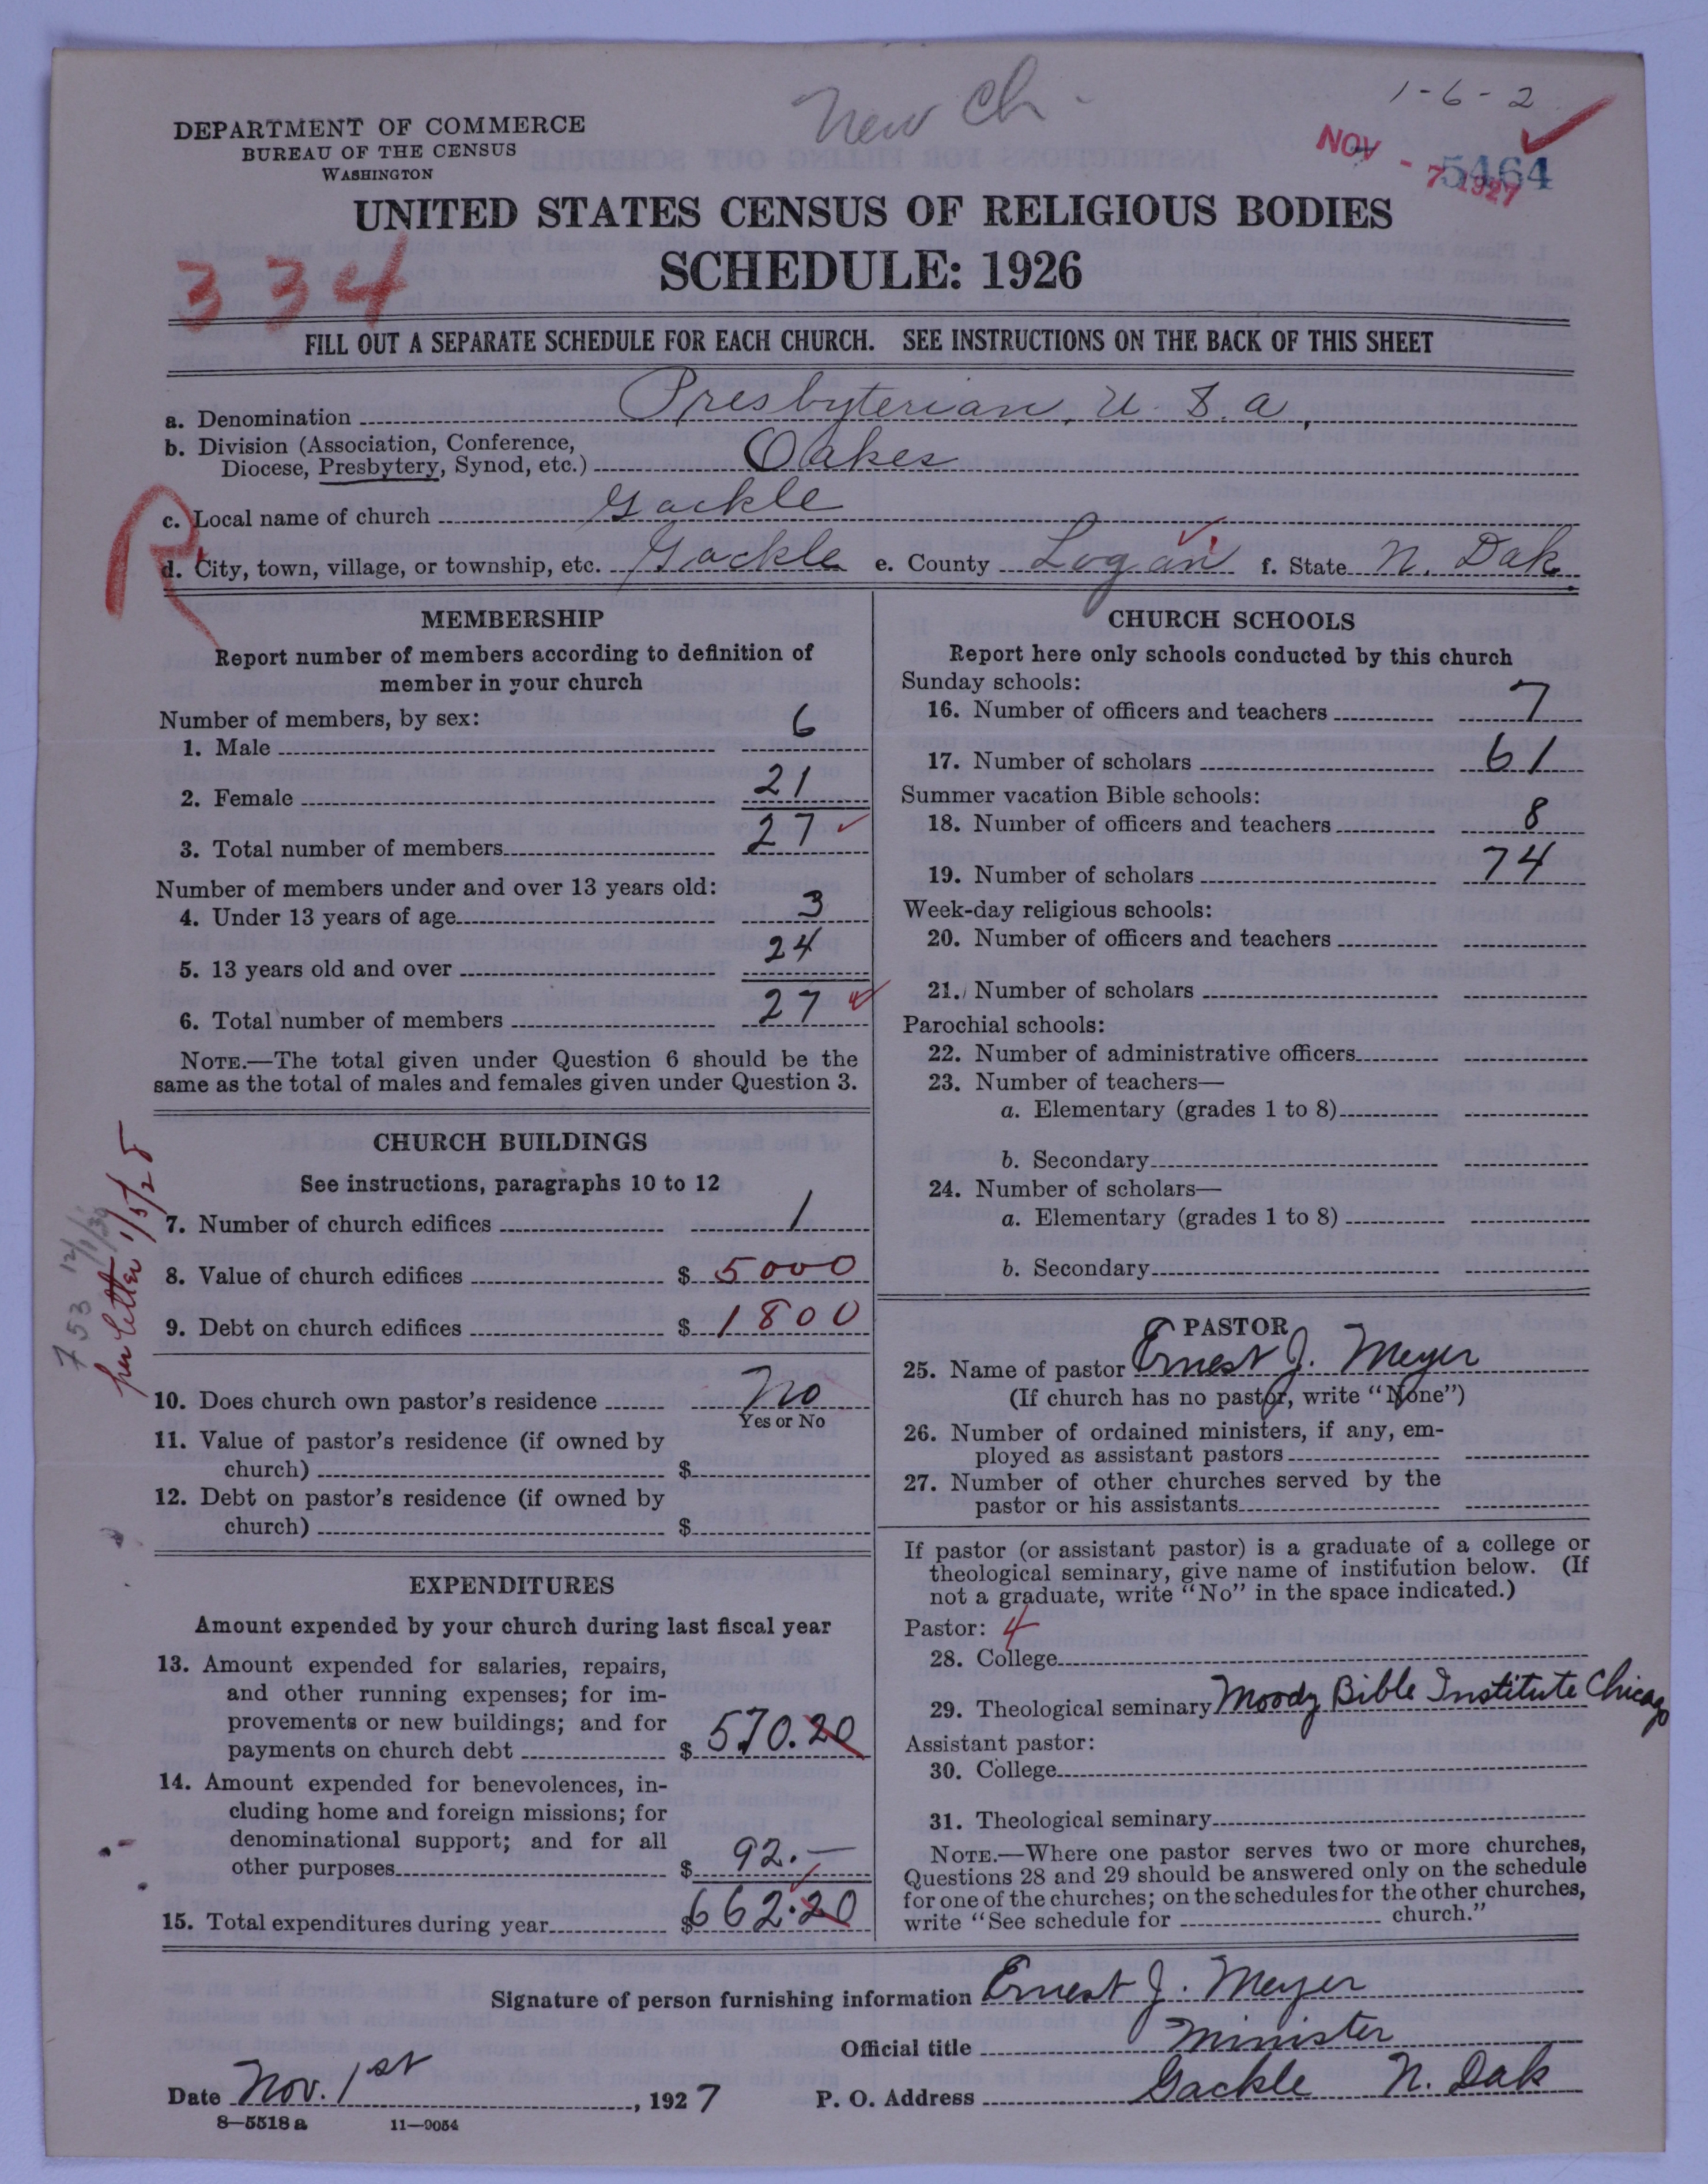 New Ch.
1-6-2
DEPARTMENT OF COMMERCE
BUREAU OF THE CENSUS
WASHINGTON
NOV - 7 1927
5464
UNITED STATES CENSUS OF RELIGIOUS BODIES
SCHEDULE: 1926
334
FILL OUT A SEPARATE SCHEDULE FOR EACH CHURCH. SEE INSTRUCTIONS ON THE BACK OF THIS SHEET
a. Denomination Presbyterian, U.S.a,
b. Division (Association, Conference,
Diocese, Presbytery, Synod, etc.) Oakes
R
c. Local name of church Gackle
d. City, town, village, or township, etc. Gackle e. County Logan f. State N. Dak.
MEMBERSHIP
Report number of members according to definition of
member in your church
Number of members, by sex:
1. Male 6
2. Female 21
3. Total number of members 27
Number of members under and over 13 years old:
4. Under 13 years of age 3
5. 13 years old and over 24
6. Total number of members 27
NOTE.—The total given under Question 6 should be the
same as the total of males and females given under Question 3.
CHURCH BUILDINGS
See instructions, paragraphs 10 to 12
7. Number of church edifices 1
8. Value of church edifices $ 5000
9. Debt on church edifices $ 1800
per letter 1/5/28
753 12/1/30
10. Does church own pastor's residence No
Yes or No
11. Value of pastor's residence (if owned by
church) $
12. Debt on pastor's residence (if owned by
church) $
EXPENDITURES
Amount expended by your church during last fiscal year
13. Amount expended for salaries, repairs,
and other running expenses; for im-
provements or new buildings; and for
payments on church debt $ 570.20
14. Amount expended for benevolences, in-
cluding home and foreign missions; for
denominational support; and for all
other purposes $ 92.—
15. Total expenditures during year $ 662.20
CHURCH SCHOOLS
Report here only schools conducted by this church
Sunday schools:
16. Number of officers and teachers 7
17. Number of scholars 61
Summer vacation Bible schools:
18. Number of officers and teachers 8
19. Number of scholars 74
Week-day religious schools:
20. Number of officers and teachers
21. Number of scholars
Parochial schools:
22. Number of administrative officers
23. Number of teachers—
a. Elementary (grades 1 to 8)
b. Secondary
24. Number of scholars—
a. Elementary (grades 1 to 8)
b. Secondary
PASTOR
25. Name of pastor Ernest J. Meyer
(If church has no pastor, write "None")
26. Number of ordained ministers, if any, em-
ployed as assistant pastors
27. Number of other churches served by the
pastor or his assistants
If pastor (or assistant pastor) is a graduate of a college or
theological seminary, give name of institution below. (If
not a graduate, write "No" in the space indicated.)
Pastor: 4
28. College
29. Theological seminary Moody Bible Institute Chicago
Assistant pastor:
30. College
31. Theological seminary
NOTE.—Where one pastor serves two or more churches,
Questions 28 and 29 should be answered only on the schedule
for one of the churches; on the schedules for the other churches,
write "See schedule for church."
Signature of person furnishing information Ernest J. Meyer
Official title Minister
Date Nov. 1st, 1927 P. O. Address Gackle N. Dak
8—5518 a 11—9054